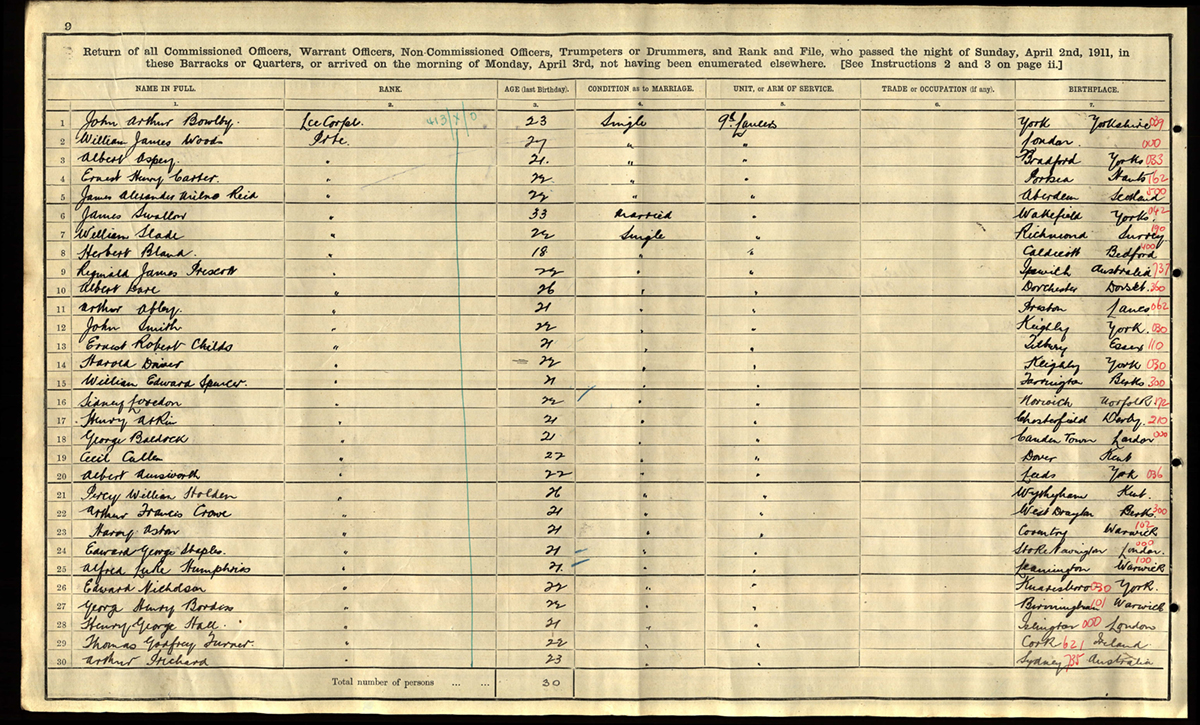 9
Return of all Commissioned Officers, Warrant Officers, Non-Commissioned Officers, Trumpeters or Drummers, and Rank and File, who passed the night of Sunday, April 2nd, 1911, in
these Barracks or Quarters, or arrived on the morning of Monday, April 3rd, not having been enumerated elsewhere. [See Instructions 2 and 3 on page ii.]
NAME IN FULL. RANK. AGE (last Birthday). CONDITION as to MARRIAGE. UNIT, or ARM OF SERVICE. TRADE or OCCUPATION (if any). BIRTHPLACE.
1. 2. 3. 4. 5. 6. 7.
1 John Arthur Bowlby. Lce Corpl. 23 Single 9th Lancers York Yorkshire
2 William James Woods Pvte. 27 " " London. 000
3 Albert Aspey. " 21. " " Bradford Yorks 033
4 Ernest Henry Carter " 22 " " Portsea Hants 162
5 James Alexander Milne Reid " 22 " " Aberdeen Scotland 500
6 James Swallow " 33 Married " Wakefield Yorks. 042
7 William Slade " 22 Single " Richmond Surrey 190
8 Herbert Bland. " 18 " " Caldicott Bedford 400
9 Reginald James Prescott " 22 " " Ipswich Australia 737
10 Albert " 26 " " Dorchester Dorset. 360
11 Arthur " 21 " " Preston Lancs 062
12 John Smith " 22 " " Keighly York. 030
13 Ernest Robert Childs " 21 " " Tilbury Essex 110
14 Harold Driver " 22 " " Keighly York 030
15 William Edward Spencer. " 21 " " Farrington Berks 300
16 Sidney " 22 " " Norwich Norfolk 172
17 Henry Atkin " 21 " " Chesterfield Derby. 210
18 George Baldock " 21 " " Camden Town London 000
19 Cecil Cullen " 22 " " Dover Kent
20 Albert Ainsworth " 22 " " Leeds York 036
21 Percy William Holden " 26 " " Kent.
22 Arthur Francis Crowe " 21 " " West Drayton Berks. 300
23 Harry Aston " 21 " " Coventry Warwick 102
24 Edward George Staples. " 21 " " Stoke Newington London. 000
25 Alfred Luke Humphriss " 21. " " Leamington Warwick 100
26 Edward Nicholson " 22 " " Knaresboro 030 York.
27 George Henry " 22 " " Birmingham 101 Warwick
28 Henry George Hall. " 21 " " Islington 000 London
29 Thomas Godfrey Turner. " 22 " " Cork 621 Ireland
30 Arthur Prichard " 23 " " Sydney 735 Australia
Total number of persons ... ... 30